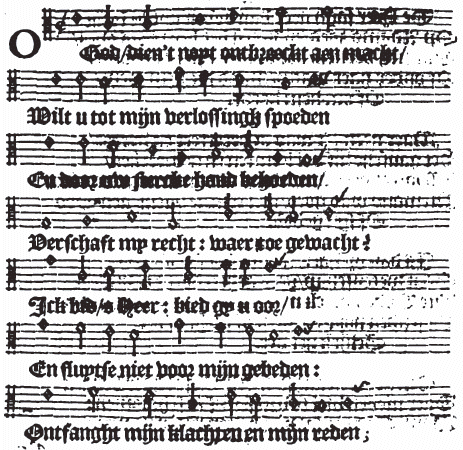 O God/dien't noyt ontbroockt aen macht/
Wilt u tot mijn verlossingh spoeden
En door uw stercke hand behoeden/
Verschaft my recht: waer toe gewacht?
Ick bid/o Heer: bied gy u oor/
En sluytse niet voor mijn gebeden:
Ontfanght mijn klachten en mijn reden;